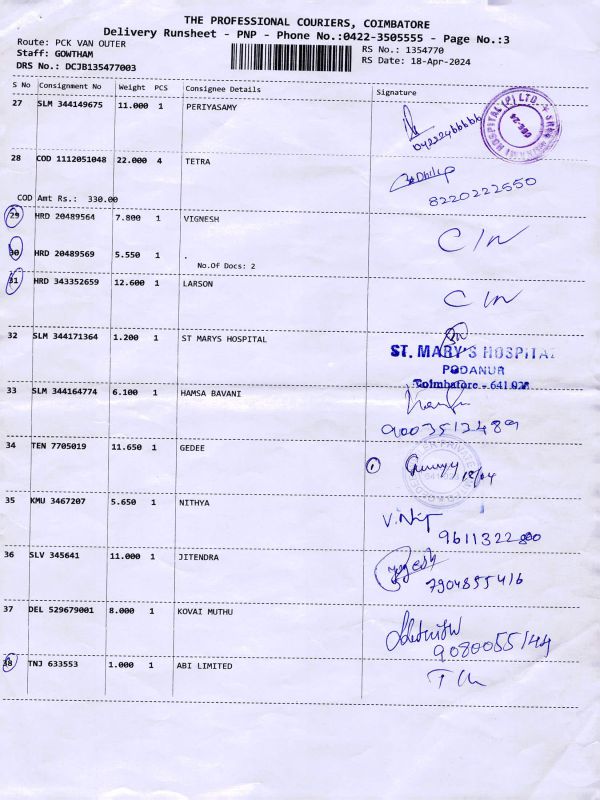 THE PROFESSIONAL COURIERS, COIMBATORE
Delivery Runsheet - PNP - Phone No.:0422-3505555 - Page No.:3
Route: PCK VAN OUTER RS No.: 1354770
Staff: GOWTHAM RS Date: 18-Apr-2024
DRS No.: DCJB135477003
S No Consignment No Weight PCS Consignee Details Signature
27 SLM 344149675 11.000 1 PERIYASAMY
HOSPITAL (P) LTD.
28 COD 1112051048 22.000 4 TETRA
8220222550
COD Amt Rs.: 330.00
29 HRD 20489564 7.800 1 VIGNESH
C/N
30 HRD 20489569 5.550 1 .
No.Of Docs: 2
31 HRD 343352659 12.600 1 LARSON
C/N
32 SLM 344171364 1.200 1 ST MARYS HOSPITAL
ST. MARY'S HOSPITAL
PODANUR
Coimbatore - 641 023
33 SLM 344164774 6.100 1 HAMSA BAVANI
9003512489
34 TEN 7705019 11.650 1 GEDEE
35 KMU 3467207 5.650 1 NITHYA
9611322800
36 SLV 345641 11.000 1 JITENDRA
Jogesh
7904855416
37 DEL 529679001 8.000 1 KOVAI MUTHU
9080055144
38 TNJ 633553 1.000 1 ABI LIMITED